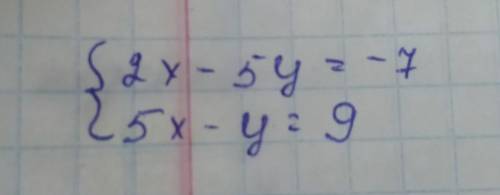 {2x - 5y = -7
5x - y = 9